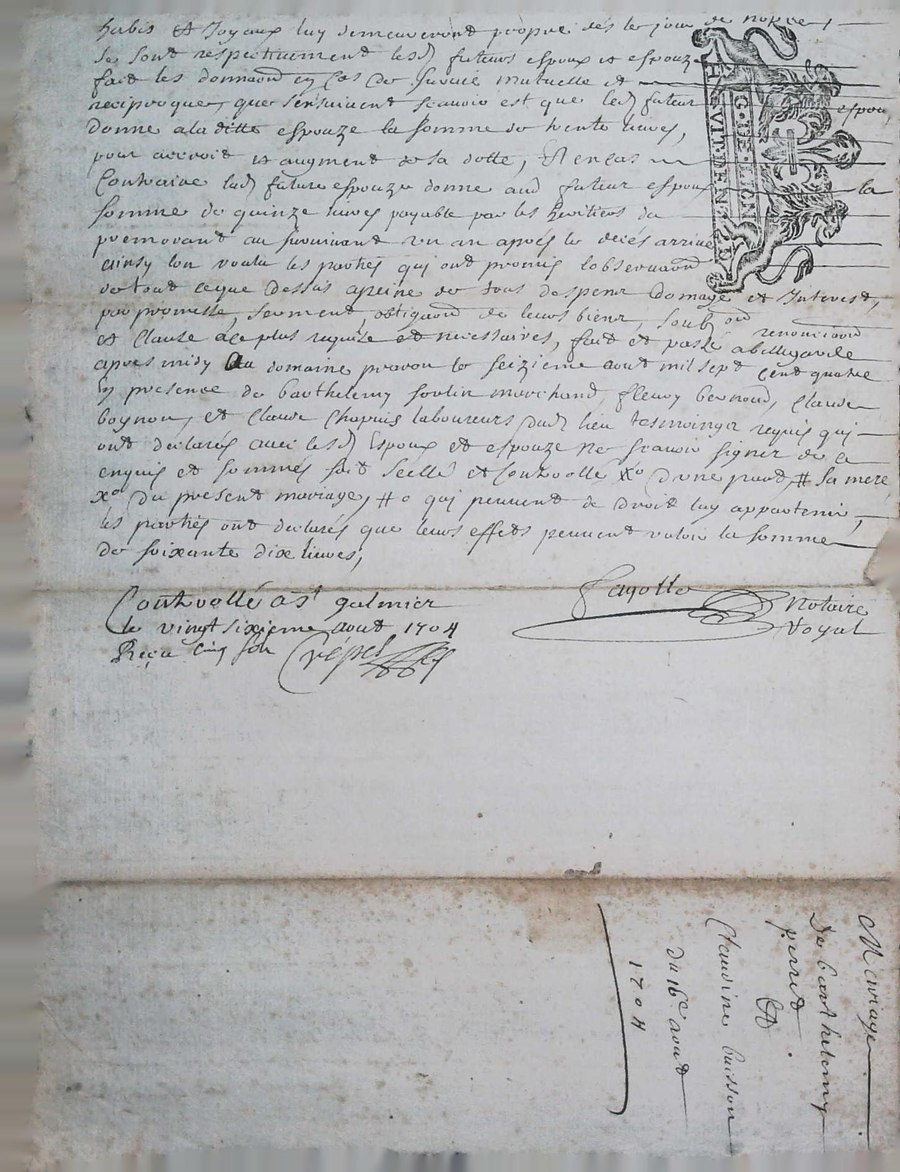 habis et Joyaux luy demeureront propre dés le jour de nopce,
Se sont respectivement lesd futeurs espoux et espouze
fait les donnaõns en Cas de Survie mutuelle et
reciproque, que sensuivent scavoir est que led futeur espoux
donne a la ditte espouze la somme de trente livres,
pour accroit et augment de sa dotte, Et en cas
Contraire lad future espouze donne aud futeur espoux la
somme de quinze livres payable par les heritiers du
premourant au survivant un an aprés le decés arrivé
ainsy lon voulu les parties qui ont promis lobservaõn
de tout ceque dessus apeine de tous despens domage et Interest,
par promesse, serment, obligaõn de leurs biens, soubõn renonciaõn
et Clause a ce plus requise et necessaires, fait et passé a bellegarde
apres midy au domaine le seizieme aout mil sept cent quatre
En presence de barthelemy marchand, fleury bernoud, Claude
boynon, et Claude Chapuis laboureurs dud lieu tesmoings requis qui
ont declarés avec lesd Espoux et espouze ne scavoir signer de ce
enquis et sommés soit scellé et Controollé Xo dune part, # sa mere
Xo du present mariage, #o qui peuvent de droit luy appartenir,
les parties ont declarés que leurs effets peuvent valoir la somme
de soixante dix livres,
Controllé a st galmier
le vingt sixieme aout 1704
Reçu Cinq sols
fagotto Notaire
Royal
C DE LION
HVIT DEN
Mariage
De barthelemy
perret
Et
Claudine buisson
du 16e aout
1704